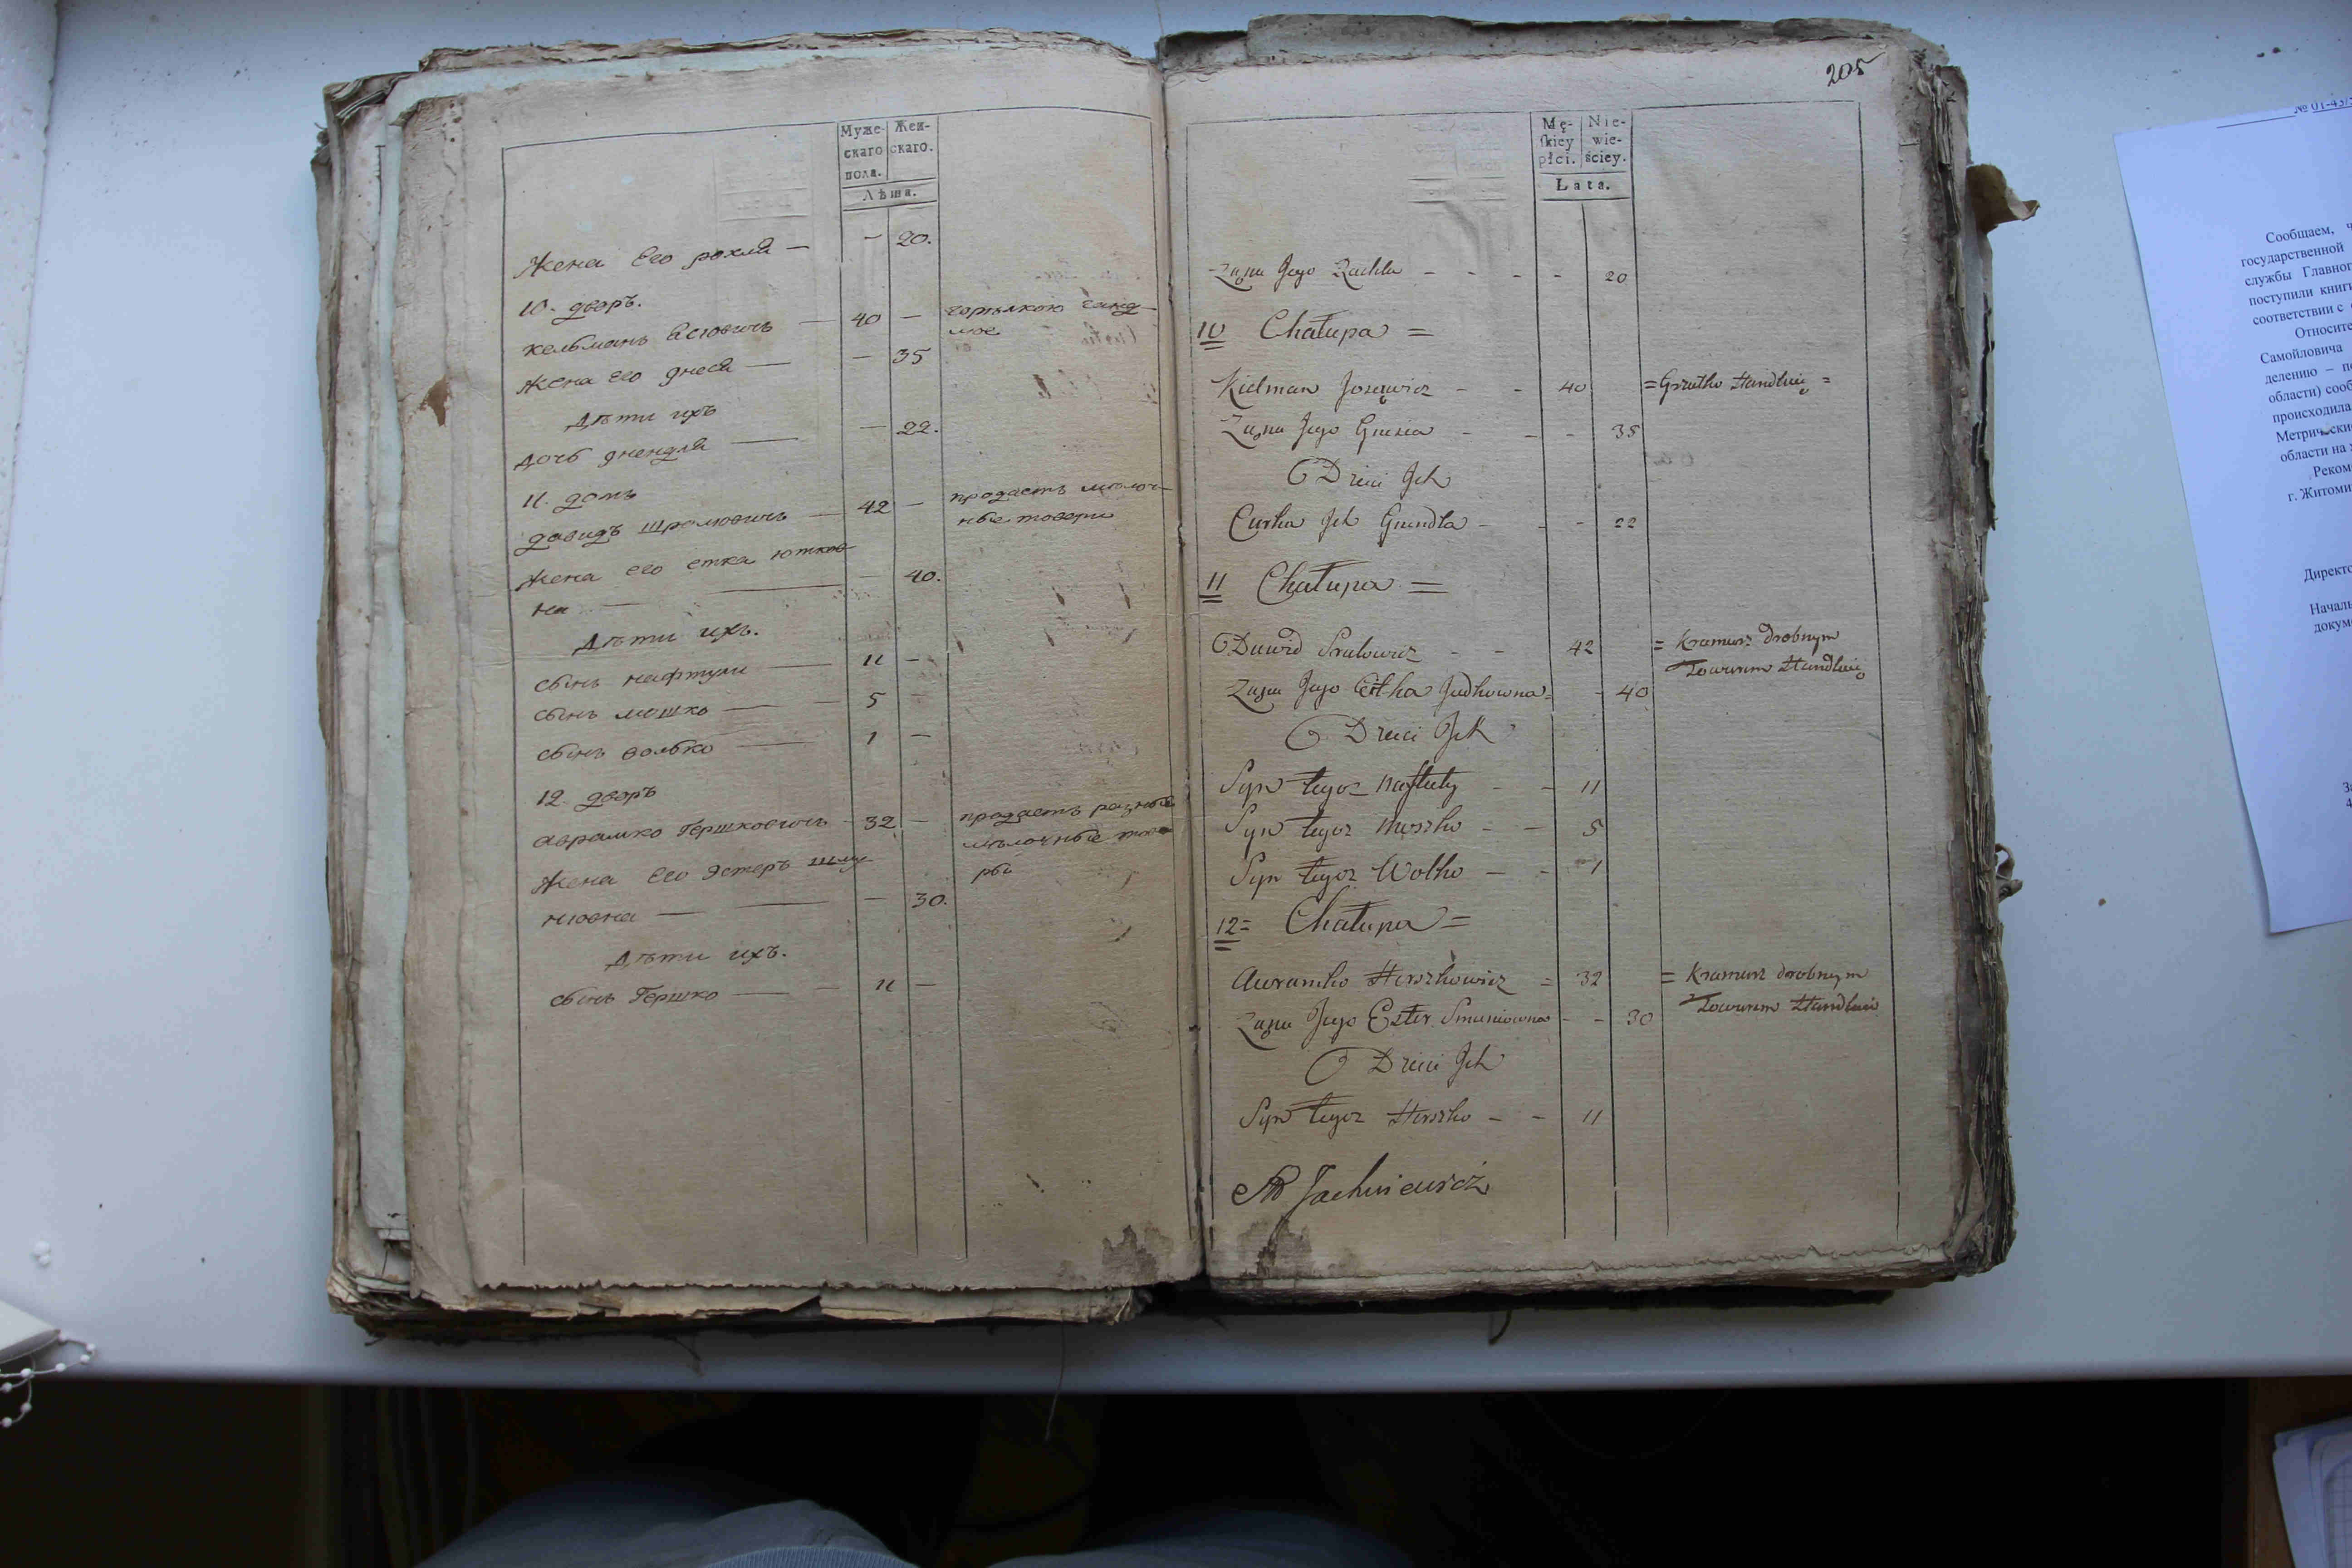 Муже-
скаго
пола.
Жен-
скаго.
Лѣта.
Жена Его рохля — — 20.
10. дворъ.
кельманъ Есювичъ — 40 — горълкою ганд-
люе
Жена Его гнеся — — 35
Дѣти ихъ
дочь гнендля — — 22.
11. домъ
давидъ шролювичъ — 42 — продаетъ мѣлоч-
ные товары
Жена его етка ютков-
на — — — 40.
Дѣти ихъ.
сынъ нафтули — 11 —
сынъ мошко — — 5 —
сынъ волько — 1 —
12. дворъ
аврамко Гершковичъ — 32 — продаетъ разные
мѣлочные това
ры
Жена Его Эстеръ шму
нювна — — — 30.
Дѣти ихъ.
сынъ Гершко — — 11 —
205
Mę-
skiey
płci.
Nie-
wie-
ściey.
Lata.
Zona Jego Rachla - - - - 20
10 Chałupa =
Kielman Josiowicz - - 40 = Gorzałko Handluie =
Zona Jego Gnesia - - - 35
Dzieci Ich
Curka Ich Gnendla - - - 22
11 Chałupa =
Dawid Srulowicz - - 42 = Kramarz drobnym
Towarem Handluie
Zona Jego Etka Judkowna = - 40
Dzieci Ich
Syn tegoz Naftuly - - 11
Syn tegoz Moszko - - 5
Syn tegoz Wolko - - 1
12 = Chałupa =
Awramko Herszkowicz = 32 = Kramarz drobnym
Towarem Handluie
Zona Jego Ester Smuniowna - - 30
Dzieci Ich
Syn tegoz Herszko - - 11
Jachniewicz
№ 01-43/
Сообщаем, ч
государственной
службы Главног
поступили книги
соответствии с
Относите
Самойловича
делению – по
области) сооб
происходила
Метрически
области на х
Реком
г. Житоми
Директо
Началь
докум